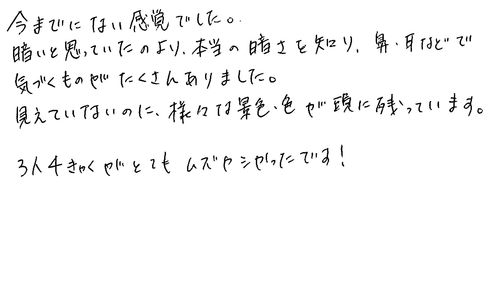 今までにない感覚でした。
暗いと思っていたのより、本当の暗さを知り、鼻・耳などで
気づくものがたくさんありました。
見えていないのに、様々な景色・色が頭に残っています。
3人4きゃくがとてもムズかシかったです!